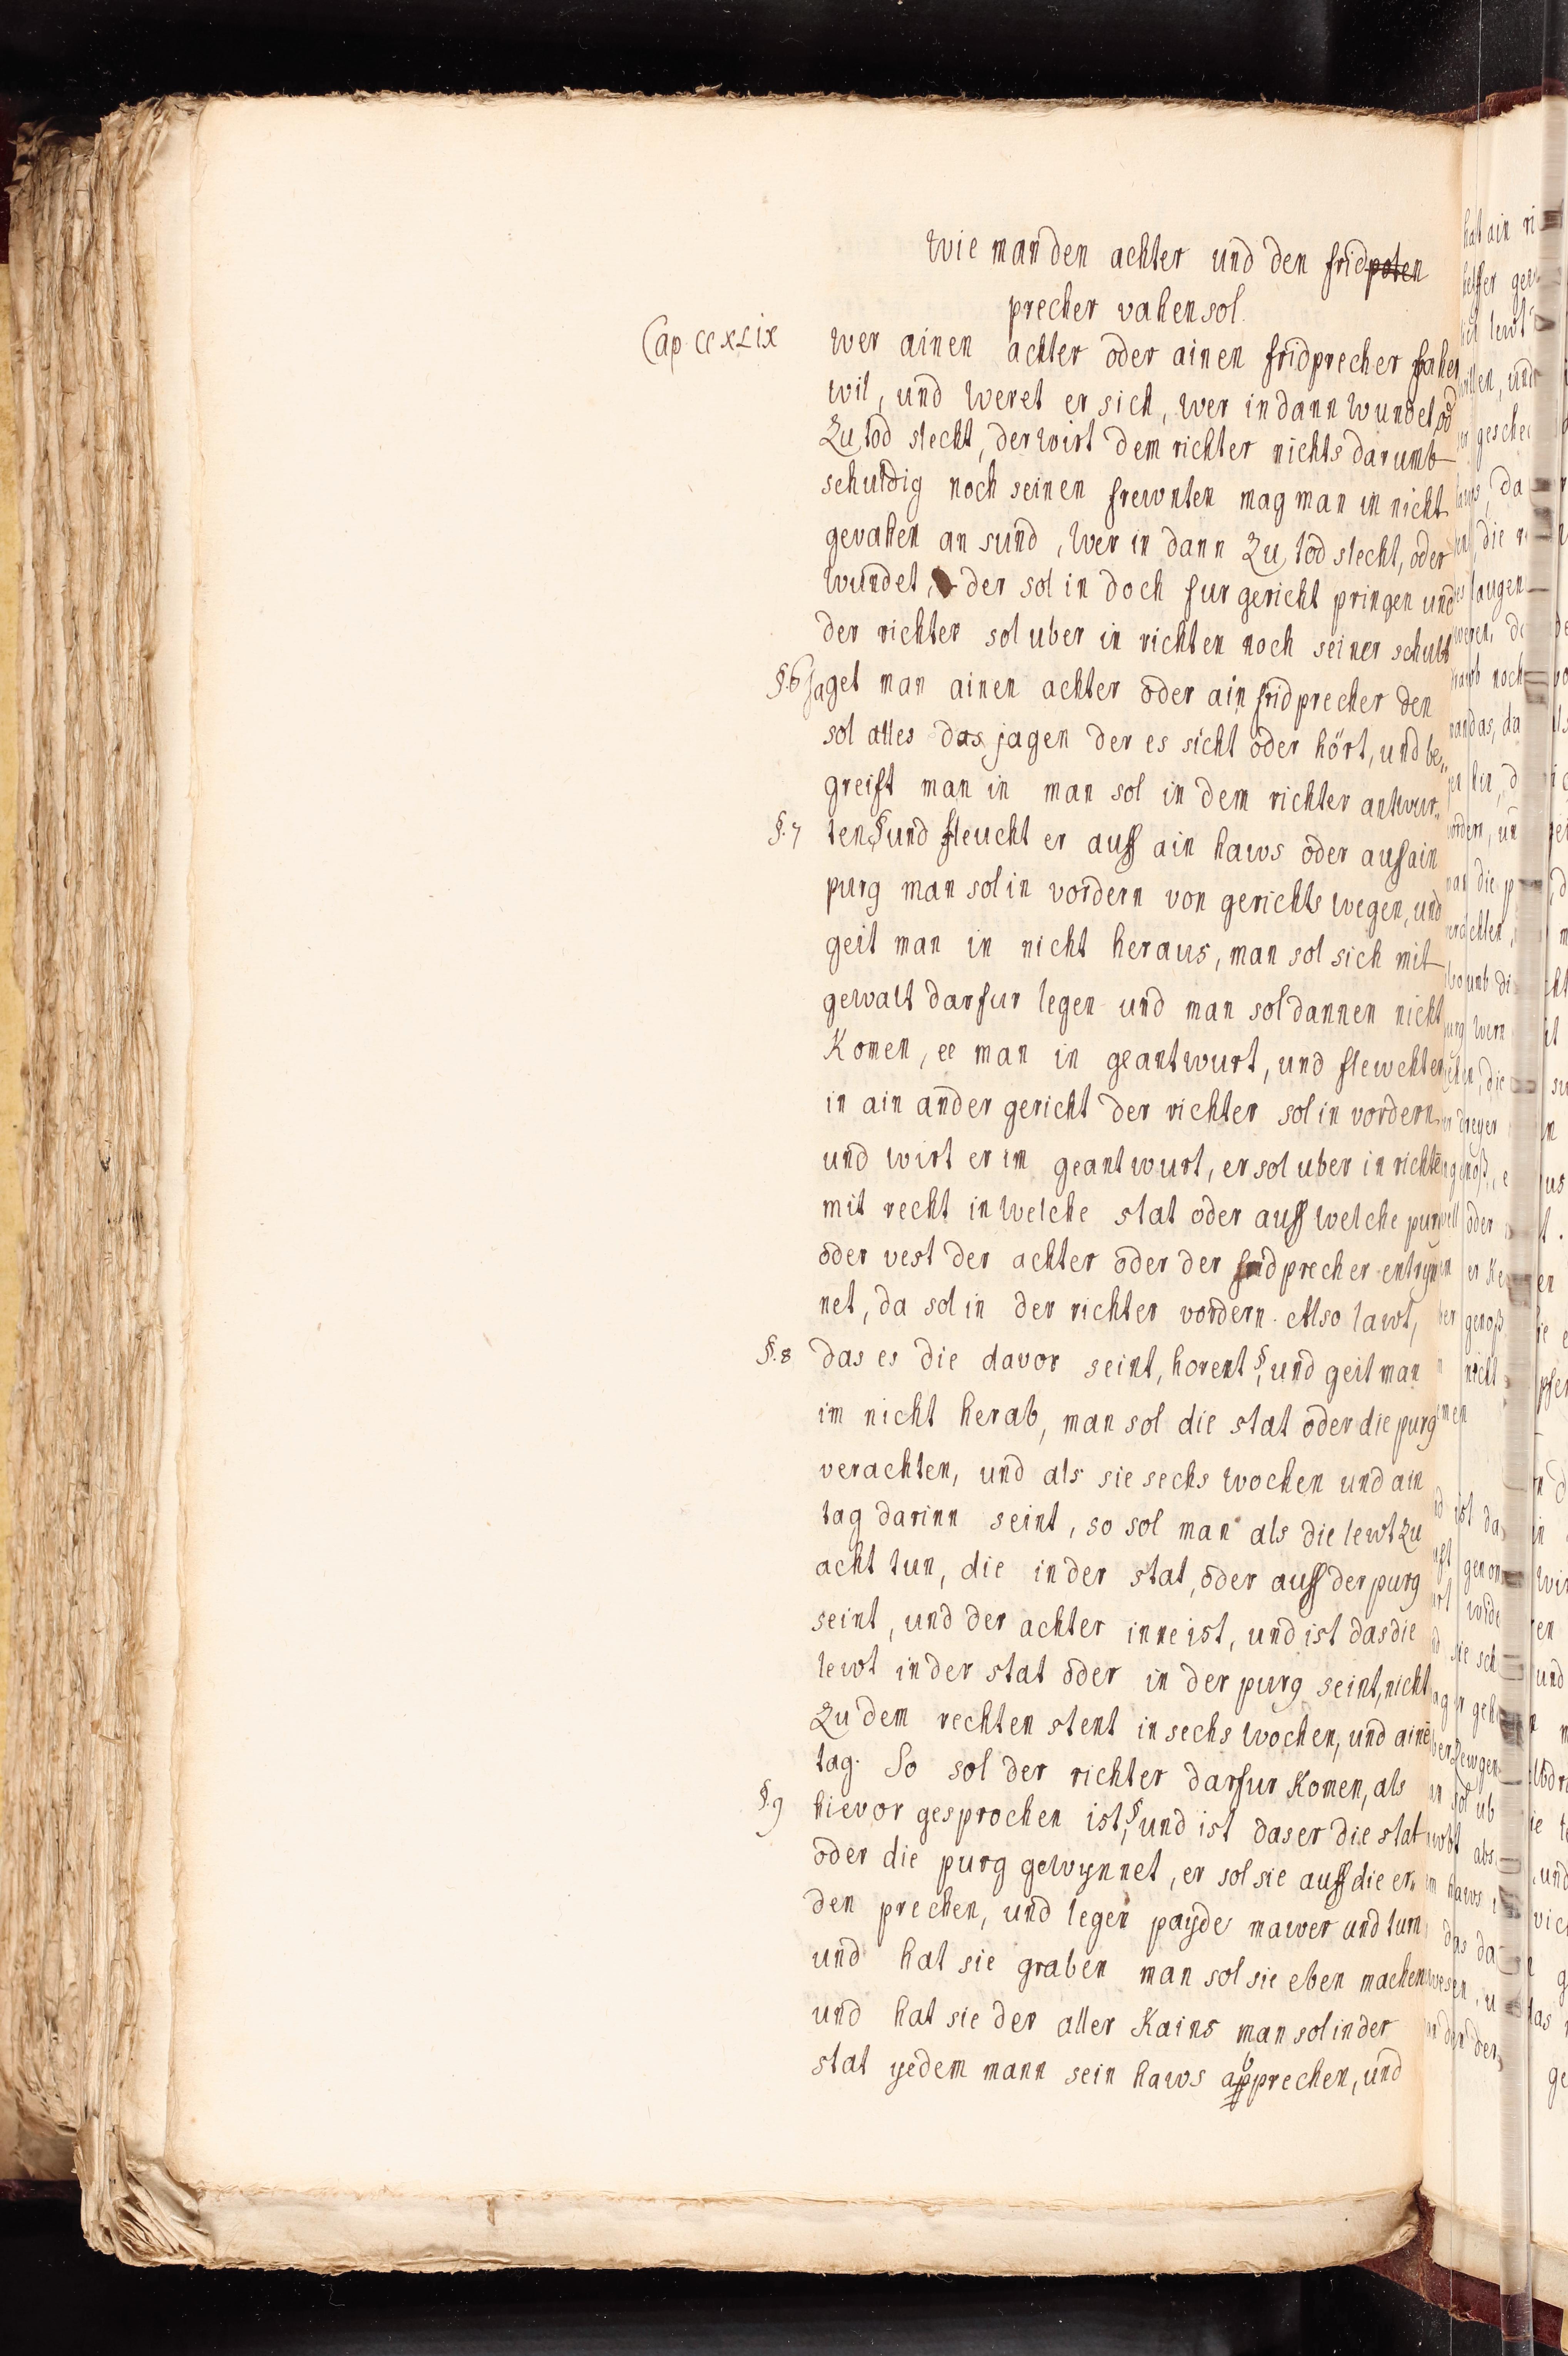 wie man den achter und den fridpoten
precher vahen sol.
Cap. CCXLIX wer ainen achter oder ainen fridprecher fahen
wil, und weret er sich, wer in dann wundet, od
Zu tod slecht, der wirt dem richter nichts darumb
schuldig noch seinen frewnten mag man in nicht
gevahen an sund, wer in dann Zu tod slecht, oder
wundet, der sol in doch fur gericht pringen und
der richter sol uber in richten noch seiner schult
§.6 Jaget man ainen achter oder ain fridprecher den
sol alles das jagen der es sicht oder hört, und be„
greift man in man sol in dem richter antwur„
§.7 ten§ und fleucht er auff ain haws oder auf ain
purg man sol in vordern von gerichts wegen, und
geit man in nicht heraus, man sol sich mit
gewalt darfur legen und man sol dannen nicht
Komen, ee man in geantwurt, und flewcht er
in ain ander gericht der richter sol in vordern
und wirt er im geantwurt, er sol uber in richtē
mit recht in welche stat oder auff welche purg
oder vest der achter oder der fridprecher entryn
net, da sol in der richter vordern. Also lawt,
§.8 das es die davor seint, horent§, und geit man
im nicht herab, man sol die stat oder die purg
verachten, und als sie sechs wochen und ain
tag darinn seint, so sol man als die lewt Zu
acht tun, die in der stat, oder auff der purg
seint, und der achter inne ist, und ist das die
lewt in der stat oder in der purg seint, nicht
Zu dem rechten stent in sechs wochen, und ainē
tag. So sol der richter darfur Komen, als
§.9 hievor gesprochen ist§, und ist das er die stat
oder die purg gewynnet, er sol sie auff die er„
den prechen, und legen payde mawer und turn
und hat sie graben man sol sie eben machen
und hat sie der aller Kains man sol in der
stat yedem mann sein haws abprechen, und